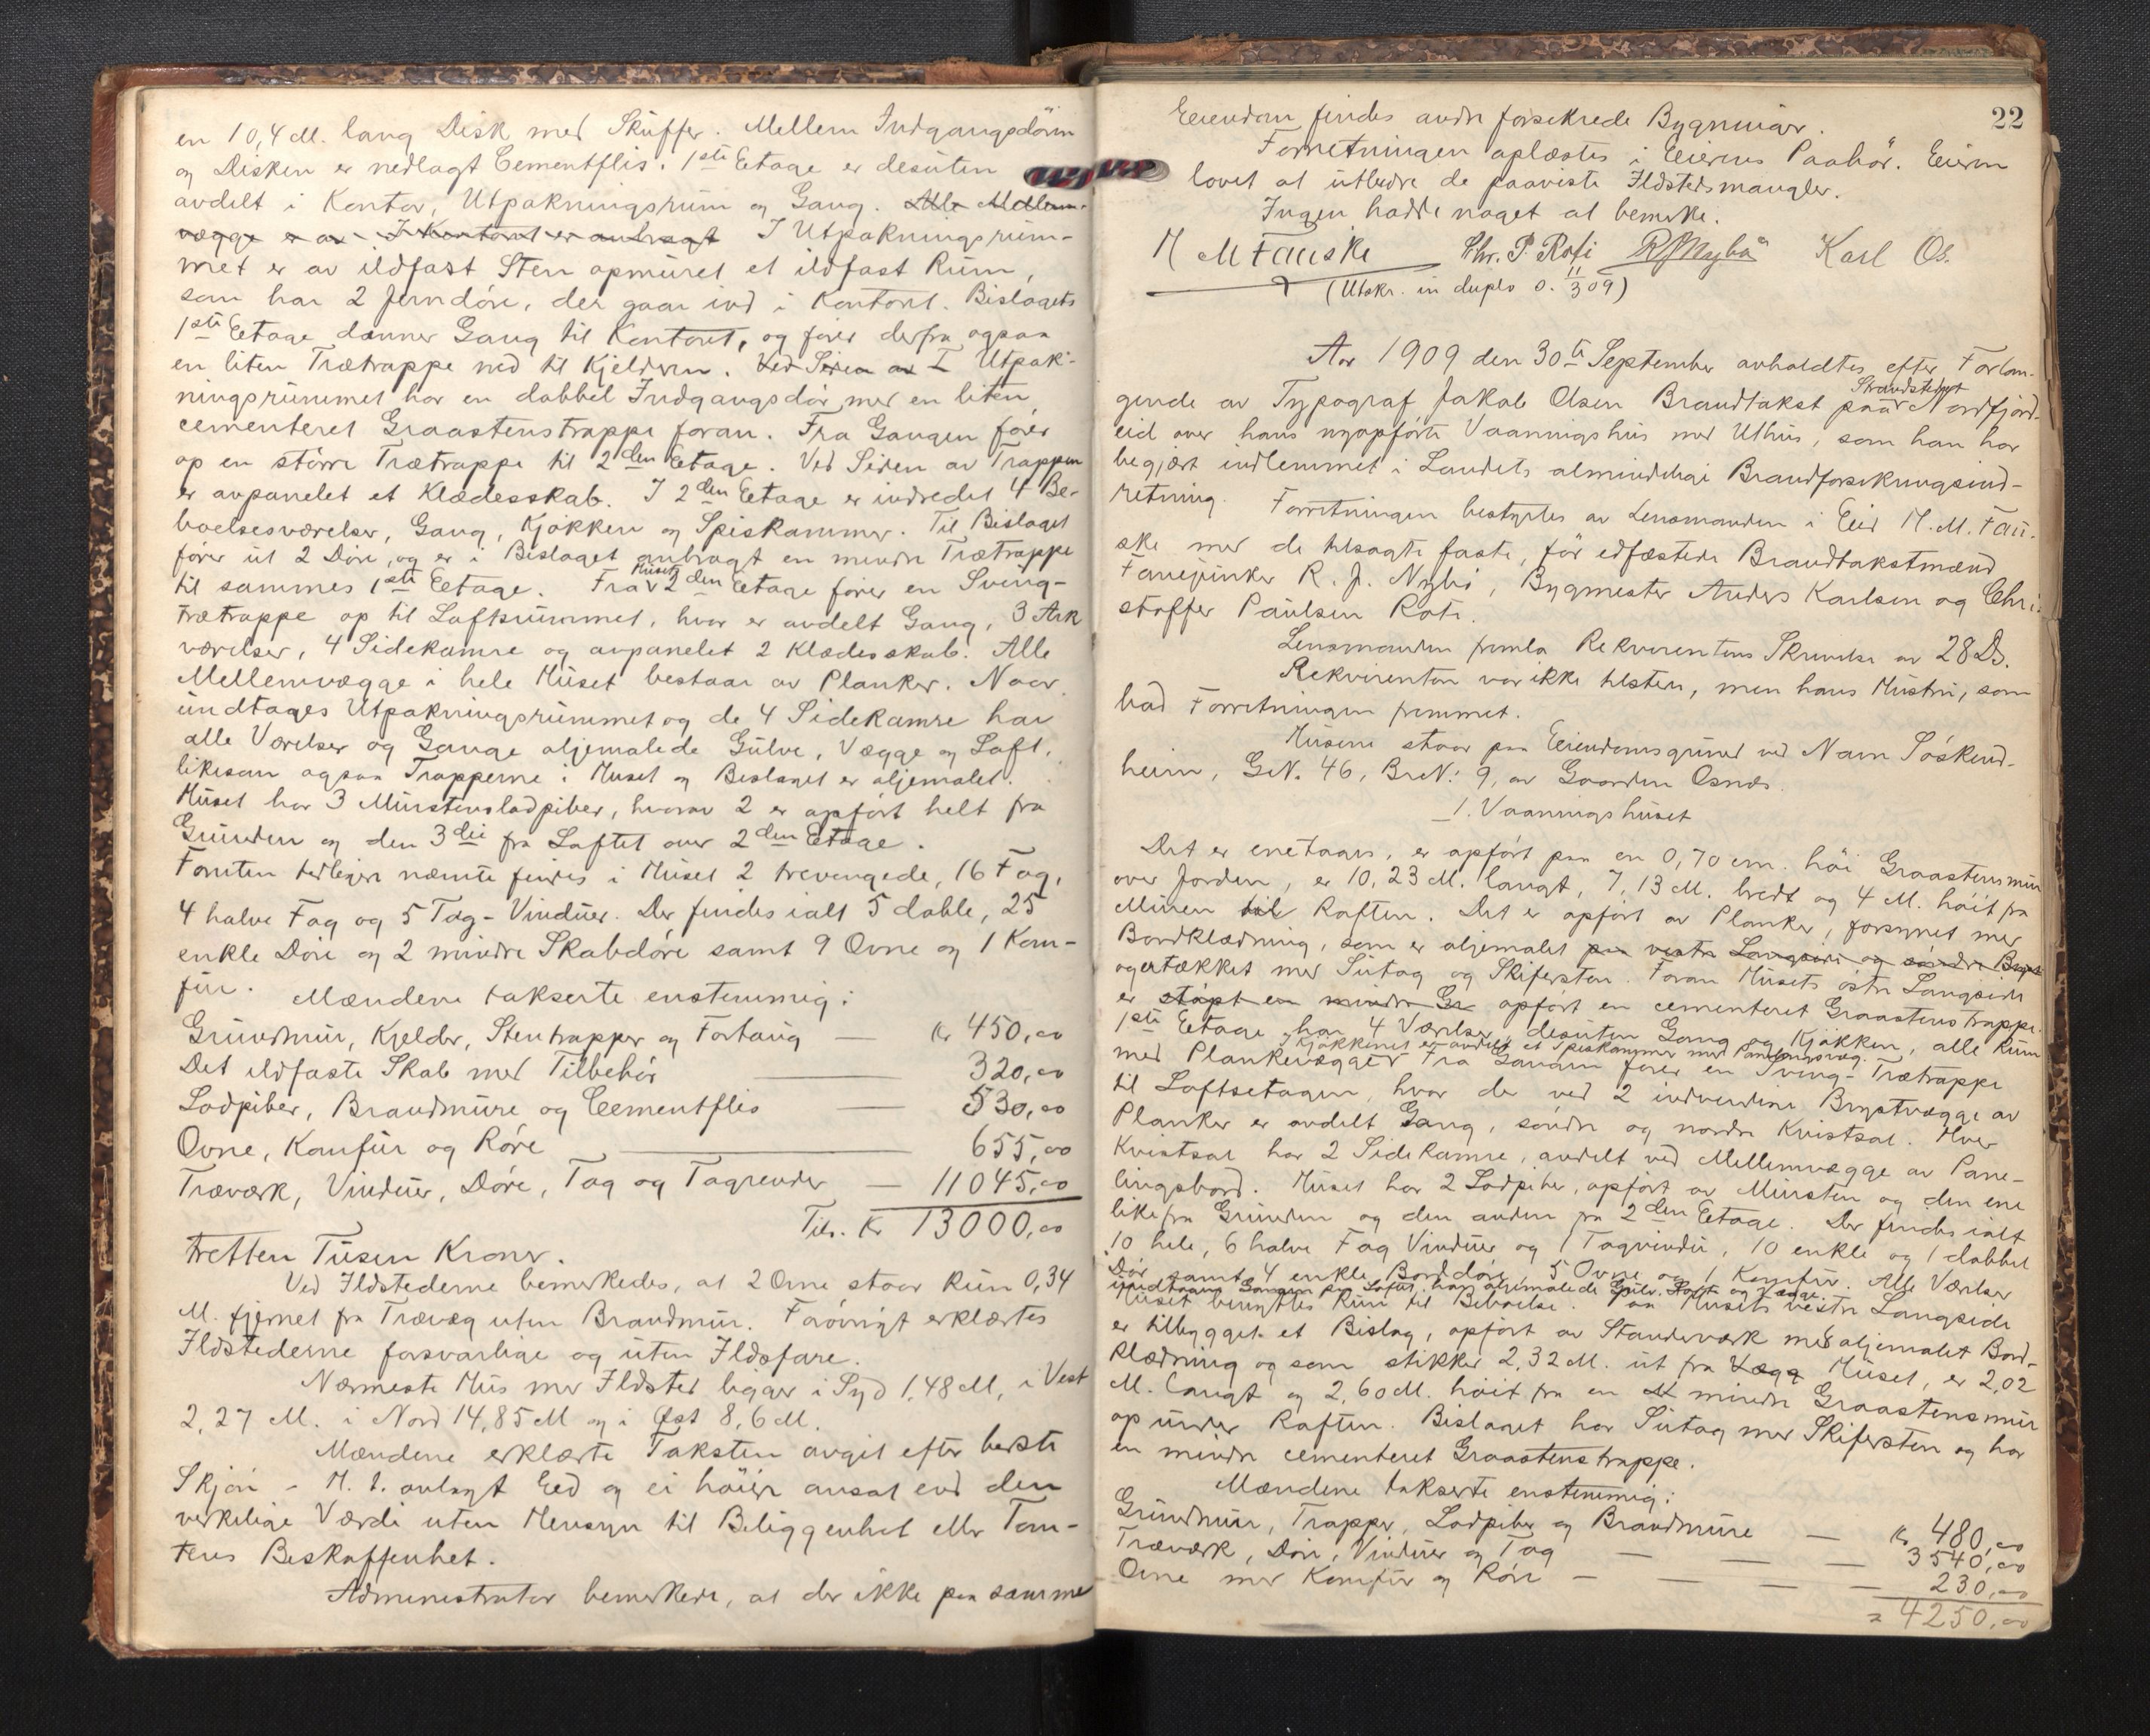 en 10,4 M. lang Disk med Skuffer. Mellem Indgangsdören
og Disken er nedlagt Cementflis. 1ste Etage er desuten
avdelt i Kontor, Utpakningsrum og Gang. Alle Mellem-
vægge er av I Kontoret er anbragt I Utpakningsrum-
met er av ildfast Sten opmuret et ildfast Rum,
som har 2 Jerndöre, der gaar ind i Kontoret. Bislagets
1ste Etage danner Gang til Kontoret, og förer derfra ogsaa
en liten Trætrappe ned til Kjelderen. Ved Siden av I Utpak-
ningsrummet har en dobbel Indgangsdör med en liten
cementeret Graastenstrappe foran. Fra Gangen förer
op en större Trætrappe til 2den Etage. Ved Siden av Trappen
er avpanelet et Klædesskab. I 2den Etage er indredet 4 Be-
boelsesværelser, Gang, Kjökken og Spiskammer. Til Bislaget
förer ut 2 Döre, og er i Bislaget anbragt en mindre Trætrappe
til sammes 1ste Etage. Fra Husets 2den Etage förer en Sving-
trætrappe op til Loftsrummet, hvor er avdelt Gang, 3 Ark
værelser, 4 Sidekamre og avpanelet 2 Klædesskab. Alle
Mellemvægge i hele Huset bestaar av Planker. Naar
undtages Utpakningsrummet og de 4 Sidekamre har
alle Værelser og Gange oljemalede Gulve, Vægge og Loft,
likesom ogsaa Trapperne i Huset og Bislaget er oljemalet.
Huset har 3 Murstensladpiber, hvorav 2 er opfört helt fra
Grunden og den 3die fra Loftet over 2den Etage.
Foruten tidligere nævnte findes i Huset 2 trevengede, 16 Fag,
4 halve Fag og 5 Tag-Vinduer. Der findes ialt 5 doble, 25
enkle Döre og 2 mindre Skabdöre samt 9 Ovne og 1 Kom-
für. Mændene takserte enstemmig:
Grundmur, Kjelder, Stentrapper og Fortaug — Kr 450,00
Det ildfaste Skab med Tilbehör — 320,00
Lodpiber, Brandmure og Cementflis — 530,00
Ovne, Komfür og Röre — 655,00
Træværk, Vinduer, Döre, Tag og Tagrender — 11045,00
Tils. Kr 13000,00
tretten Tusen Kroner.
Ved Ildstederne bemerkedes, at 2 Ovne staar kun 0,34
M. fjernet fra Trævæg uten Brandmur. Forövrigt erklærtes
Ildstederne forsvarlige og uten Ildsfare.
Nærmeste Hus med Ildsted ligger i Syd 1,48 M, i Vest
2,27 M. i Nord 14,85 M og i Öst 8,6 M.
Mændene erklærte Taksten avgit efter bedste
Skjön - H. t. avlagt Eed og ei höiere ansat end den
virkelige Værdi uten Hensyn til Beliggenhet eller Tom-
tens Beskaffenhet.
Administrator bemerkede, at der ikke paa samme
22
Eiendom findes andre forsikrede Bygninger.
Forretningen oplæstes i Eierens Paahör. Eieren
lovet at utbedre de paaviste Ildstedsmangler.
Ingen hadde noget at bemerke.
H M Fauske Chr. P. Roti R J Nybö Karl Os.
(Utskr. in duplo d. 11/3 09)
Aar 1909 den 30te September avholdtes efter Forlan-
gende av Typograf Jakob Olsen Brandtakst paa Strandstedet Nordfjord-
eid over hans nyopförte Vaaningshus med Uthus, som han har
begjært indlemmet i Landets almindelige Brandforsikringsind-
retning. Forretningen bestyrtes av Lensmanden i Eid H. M. Fau-
ske med de tilsagte faste, för edfæstede Brandtakstmænd
Fanejunker R. J. Nybö, Bygmester Anders Karlsen og Chri-
stoffer Paulsen Roti.
Lensmanden fremla Rekvirentens Skrivelse av 28 Ds.
Rekvirenten var ikke tilstede, men hans Hustru, som
bad Forretningen fremmet.
Husene staar paa Eiendomsgrund ved Navn Söskend-
heim, G.N. 46, Br.N: 9, av Gaarden Osnæs.
1. Vaaningshuset
Det er enetages, er opfört paa en 0,70 cm. höi Graastensmur
over Jorden, er 10,23 M. langt, 7,13 M. bredt og 4 M. höit fra
Muren til Raften. Det er opfört av Planker, forsynet med
Bordklædning, som er oljemalet paa vestre Langside og söndre Bryst
og er tækket med Sutag og Skifersten. Foran Husets östre Langside
er stöpt en mindre Gr opfört en cementeret Graastenstrappe.
1ste Etage har 4 Værelser, desuten Gang og Kjökken, alle Rum
med Plankevægge. I Kjökkenet er avdelt et Spiskammer med Panelingsvæg. Fra Gangen förer en Sving-Trætrappe
til Loftsetagen, hvor der ved 2 indvendige Brystvægge av
Planker er avdelt Gang, söndre og nordre Kvistsal. Hver
Kvistsal har 2 Sidekamre, avdelt ved Mellemvægge av Pane-
lingsbord. Huset har 2 Lodpiber, opfört av Mursten og den ene
like fra Grunden og den anden fra 2den Etage. Der findes ialt
10 hele, 6 halve Fag Vinduer og 1 Tagvindu, 10 enkle og 1 dobbel
Dör samt 4 enkle Borddöre, 5 Ovne og 1 Komfür. Alle Værelser
undtagen Gangen paa Loftet har oljemalede Gulv, Loft og Vægge.
Huset benyttes kun til Beboelse. Paa Husets vestre Langside
er tilbygget et Bislag, opfört av Standerværk med oljemalet Bord-
klædning og som stikker 2,32 M. ut fra Vægg Huset, er 2,02
M. langt og 2,60 M. höit fra en mindre Graastensmur
op under Raften. Bislaget har Sutag med Skifersten og har
en mindre cementeret Graastenstrappe.
Mændene takserte enstemmig:
Grundmur, Trapper, Lodpiber og Brandmure — Kr 480,00
Træværk, Döre, Vinduer og Tag — — — 3540,00
Ovne med Komfür og Röre — — — — 230,00
= 4250,00